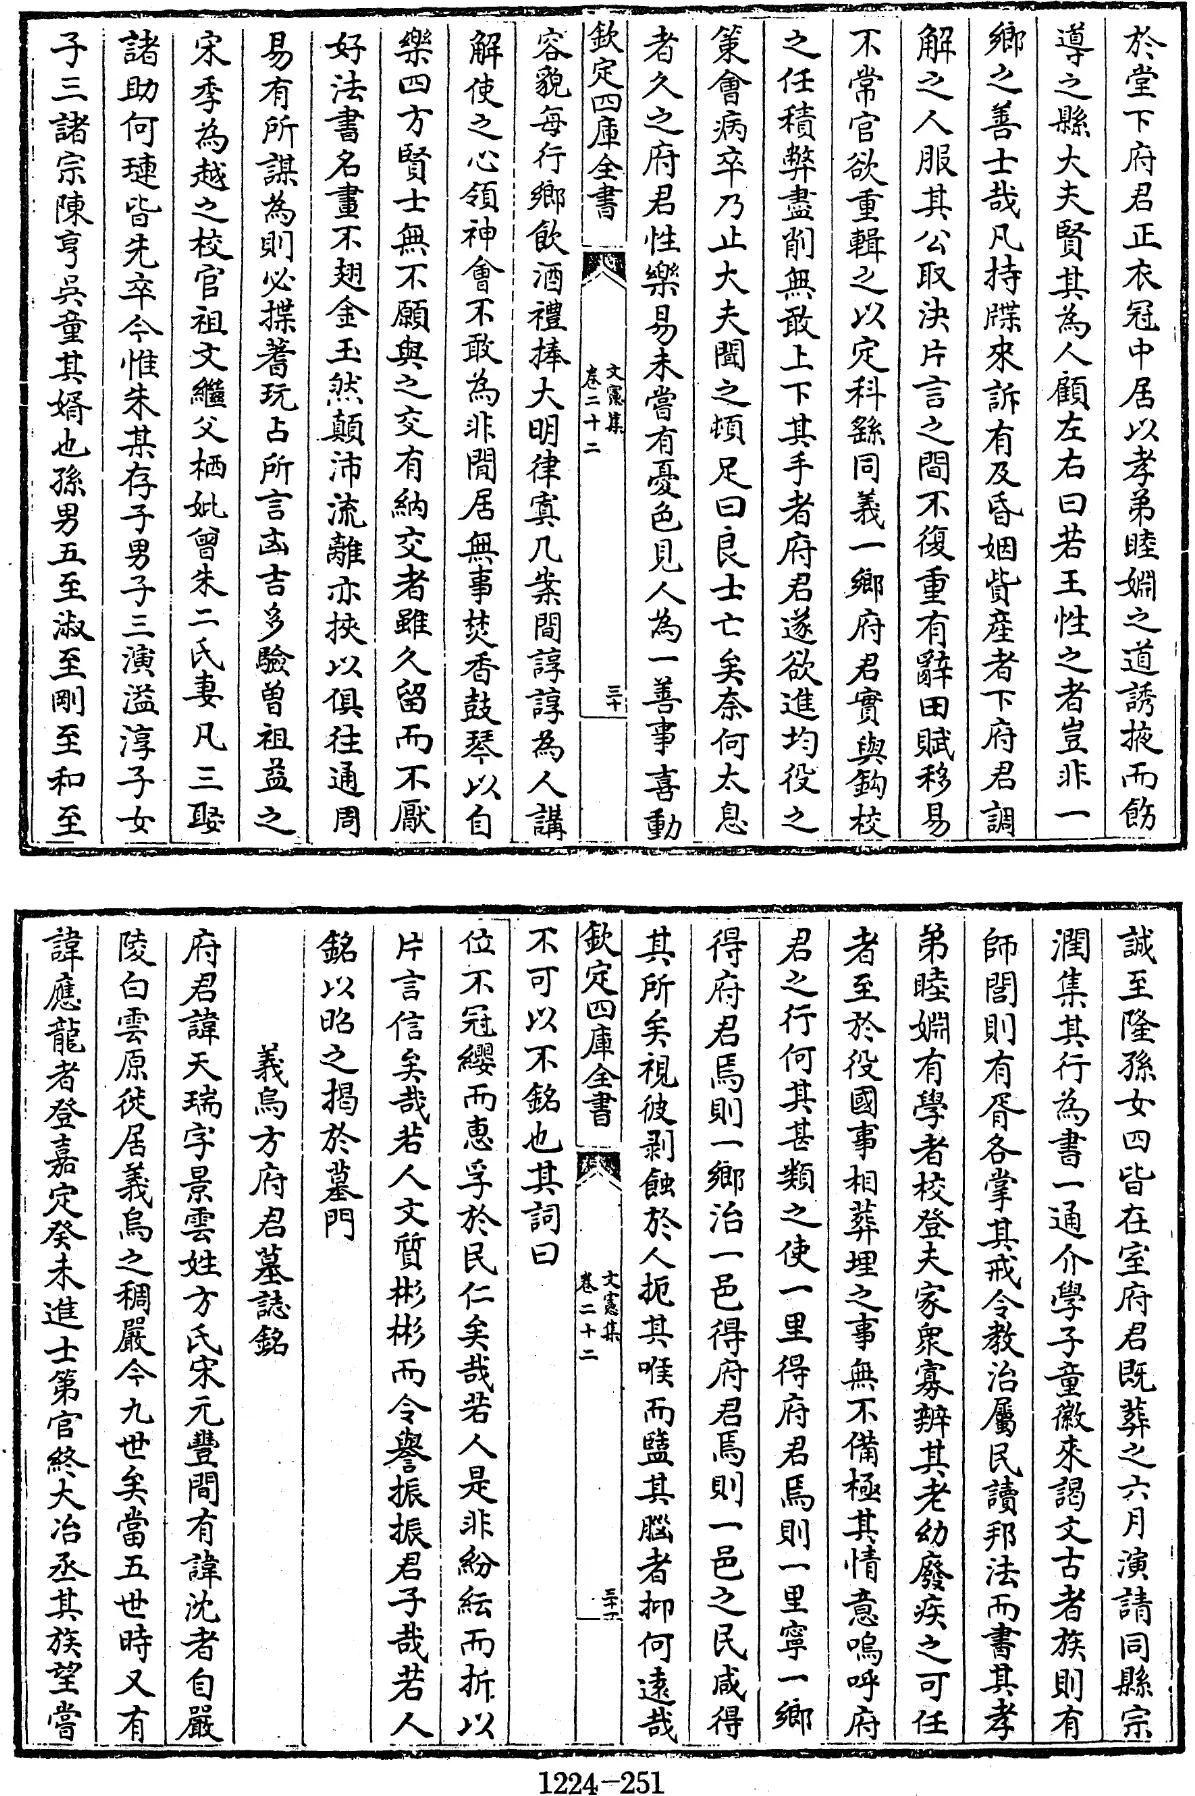 於堂下府君正衣冠中居以孝弟睦婣之道誘掖而飭
導之縣大夫賢其為人顧左右曰若王性之者豈非一
鄉之善士哉凡持牒來訴有及昏姻貲産者下府君調
解之人服其公取決片言之間不復重有辭田賦移易
不常官欲重輯之以定科繇同義一鄉府君實與鈎校
之任積弊盡削無敢上下其手者府君遂欲進均役之
策會病卒乃止大夫聞之頓足曰良士亡矣奈何太息
者久之府君性樂易未嘗有憂色見人為一善事喜動
欽定四庫全書
文憲集
卷二十二
三十
容貌每行鄉飲酒禮捧大明律寘几案間諄諄為人講
解使之心領神會不敢為非閒居無事焚香鼓琴以自
樂四方賢士無不願與之交有納交者雖久留而不厭
好法書名畫不翅金玉然顛沛流離亦挾以俱往通周
易有所謀為則必揲蓍玩占所言凶吉多驗曾祖益之
宋季為越之校官祖文繼父栖妣曾朱二氏妻凡三娶
諸助何璉皆先卒今惟朱某存子男子三演溢淳子女
子三諸宗陳亨吳童其婿也孫男五至淑至剛至和至
誠至隆孫女四皆在室府君既葬之六月演請同縣宗
潤集其行為書一通介學子童徽來謁文古者族則有
師閭則有胥各掌其戒令教治屬民讀邦法而書其孝
弟睦婣有學者校登夫家衆寡辨其老幼廢疾之可任
者至於役國事相葬埋之事無不備極其情意嗚呼府
君之行何其甚類之使一里得府君焉則一里寧一鄉
得府君焉則一鄉治一邑得府君焉則一邑之民咸得
其所矣視彼剥蝕於人扼其喉而盬其腦者抑何遠哉
欽定四庫全書
文憲集
卷二十二
三十一
不可以不銘也其詞曰
位不冠纓而惠孚於民仁矣哉若人是非紛紜而折以
片言信矣哉若人文質彬彬而令譽振振君子哉若人
銘以昭之揭於墓門
義烏方府君墓誌銘
府君諱天瑞字景雲姓方氏宋元豐間有諱沈者自嚴
陵白雲原徙居義烏之稠巖今九世矣當五世時又有
諱應龍者登嘉定癸未進士第官終大冶丞其族望嘗
1224-251